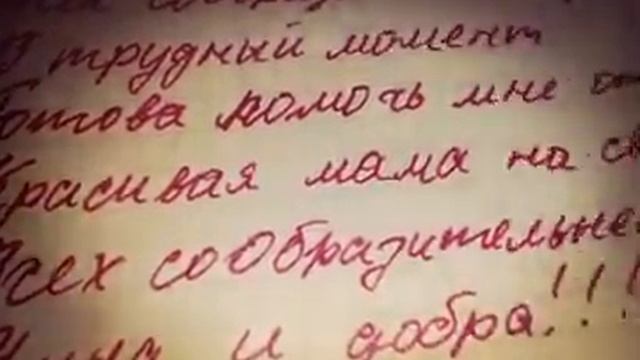 В трудный момент
Готова помочь мне от
Красивая мама на св
Всех сообразительне
Умна и добра!!!